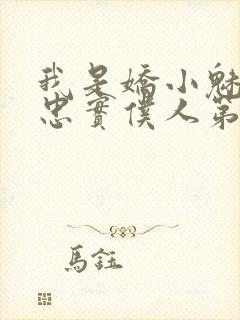 我是嬌小魅
忠實僕人第
馬鈺